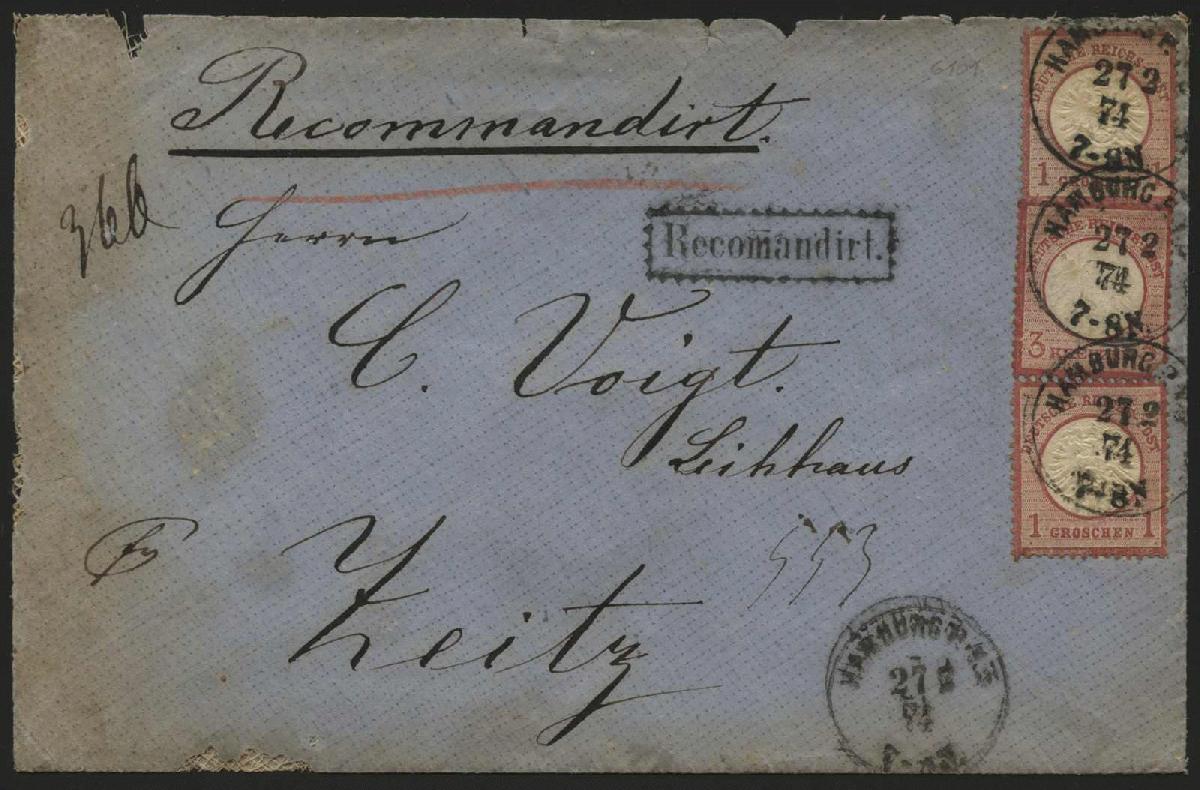 Recommandirt.
366
Herrn
Recomandirt.
C. Voigt.
Leihhaus
Zeitz
553
HAMBURG
27 2
74
7-8N.
DEUTSCHE REICHS-POST
1 GROSCHEN 1
HAMBURG
27 2
74
7-8N.
DEUTSCHE REICHS-POST
3
HAMBURG
27 2
74
7-8N.
DEUTSCHE REICHS-POST
1 GROSCHEN 1
HAMBURG
27 2
74
7-8N.